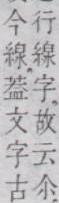 行線字。故云尒
今線。葢文字古